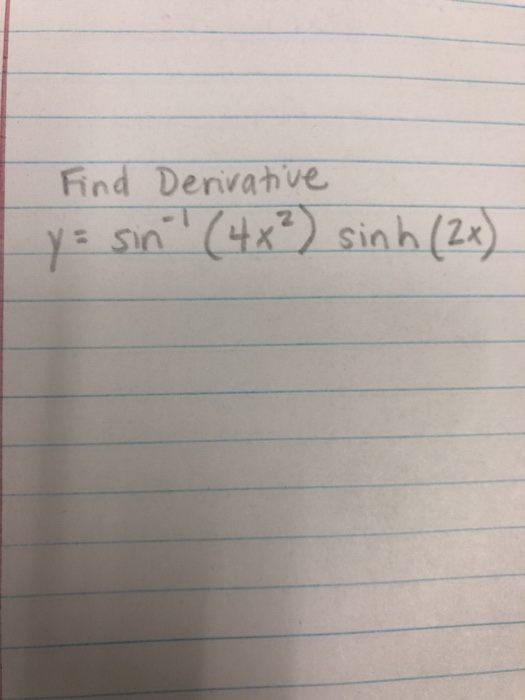 Find Derivative
y = sin⁻¹ (4x²) sinh (2x)